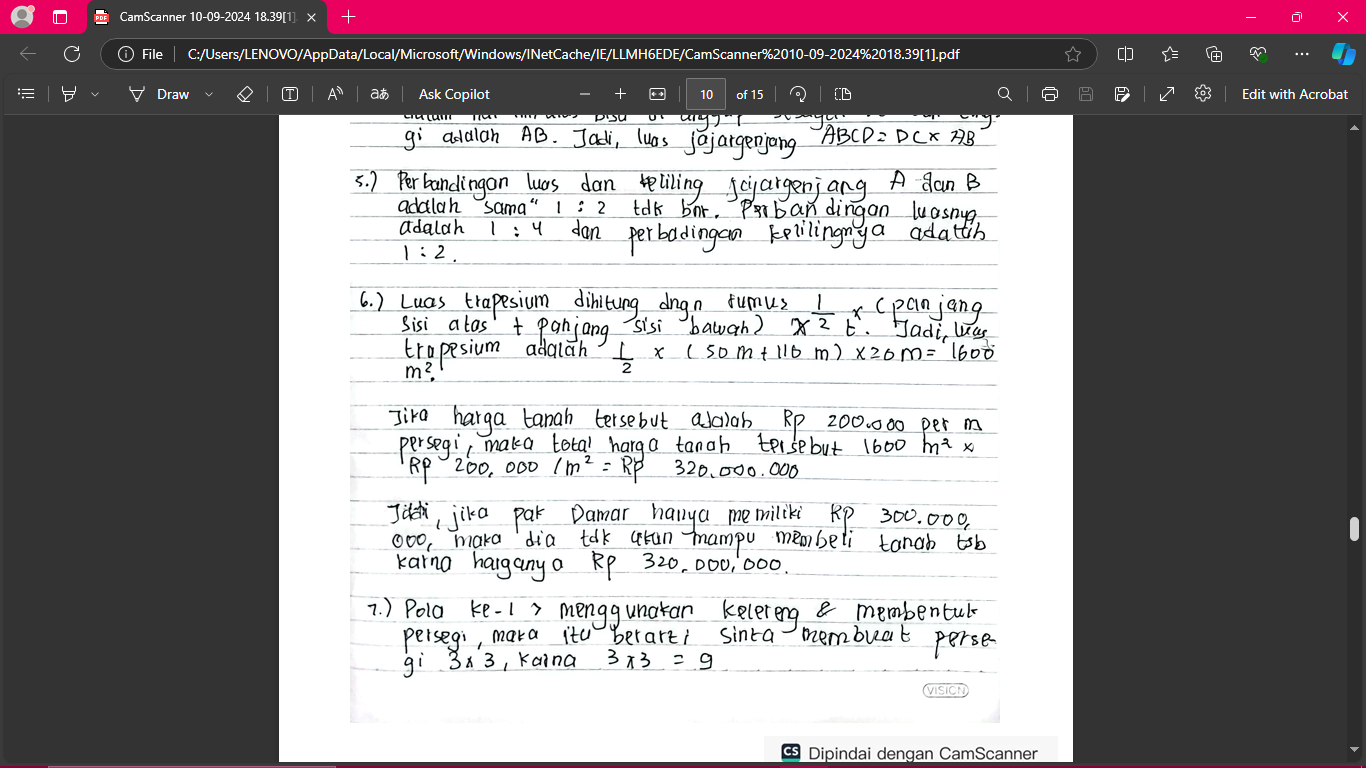 CamScanner 10-09-2024 18.39[1].
File C:/Users/LENOVO/AppData/Local/Microsoft/Windows/INetCache/IE/LLMH6EDE/CamScanner%2010-09-2024%2018.39[1].pdf
Draw aあ Ask Copilot 10 of 15 Edit with Acrobat
gi adalah AB. Jadi, luas jajargenjang ABCD = DC x AB
5.) Perbandingan luas dan keliling jajargenjang A dan B
adalah sama" 1 : 2 tdk bnr. Perbandingan luasnya
adalah 1 : 4 dan perbadingan kelilingnya adallh
1 : 2.
6.) Luas trapesium dihitung dngn rumus 1/2 x (panjang
sisi atas + panjang sisi bawah) x t. Jadi, luas
trapesium adalah 1/2 x (50 m + 110 m) x 20 m = 1600
m².
Jika harga tanah tersebut adalah Rp 200.000 per m
persegi, maka total harga tanah tersebut 1600 m² x
Rp 200.000 /m² = Rp 320.000.000
Jadi, jika pak Damar hanya memiliki Rp 300.000,
000, maka dia tdk akan mampu membeli tanah tsb
karna harganya Rp 320.000,000.
7.) Pola ke-1 > menggunakan kelereng & membentuk
persegi, maka itu berarti sinta membuat perse-
gi 3 x 3, karna 3 x 3 = 9
VISION
CS Dipindai dengan CamScanner